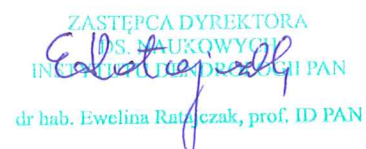 ZASTĘPCA DYREKTORA
DS. NAUKOWYCH
INSTYTUTU DENDROLOGII PAN
dr hab. Ewelina Ratajczak, prof. ID PAN